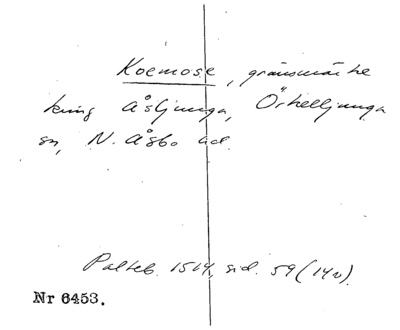 Koemose, gränsmärke
kring Åsljunga, Örkelljunga
sn, N. Åsbo hd.
Palteb. 1514, sid. 59 (14v).
Nr 6453.